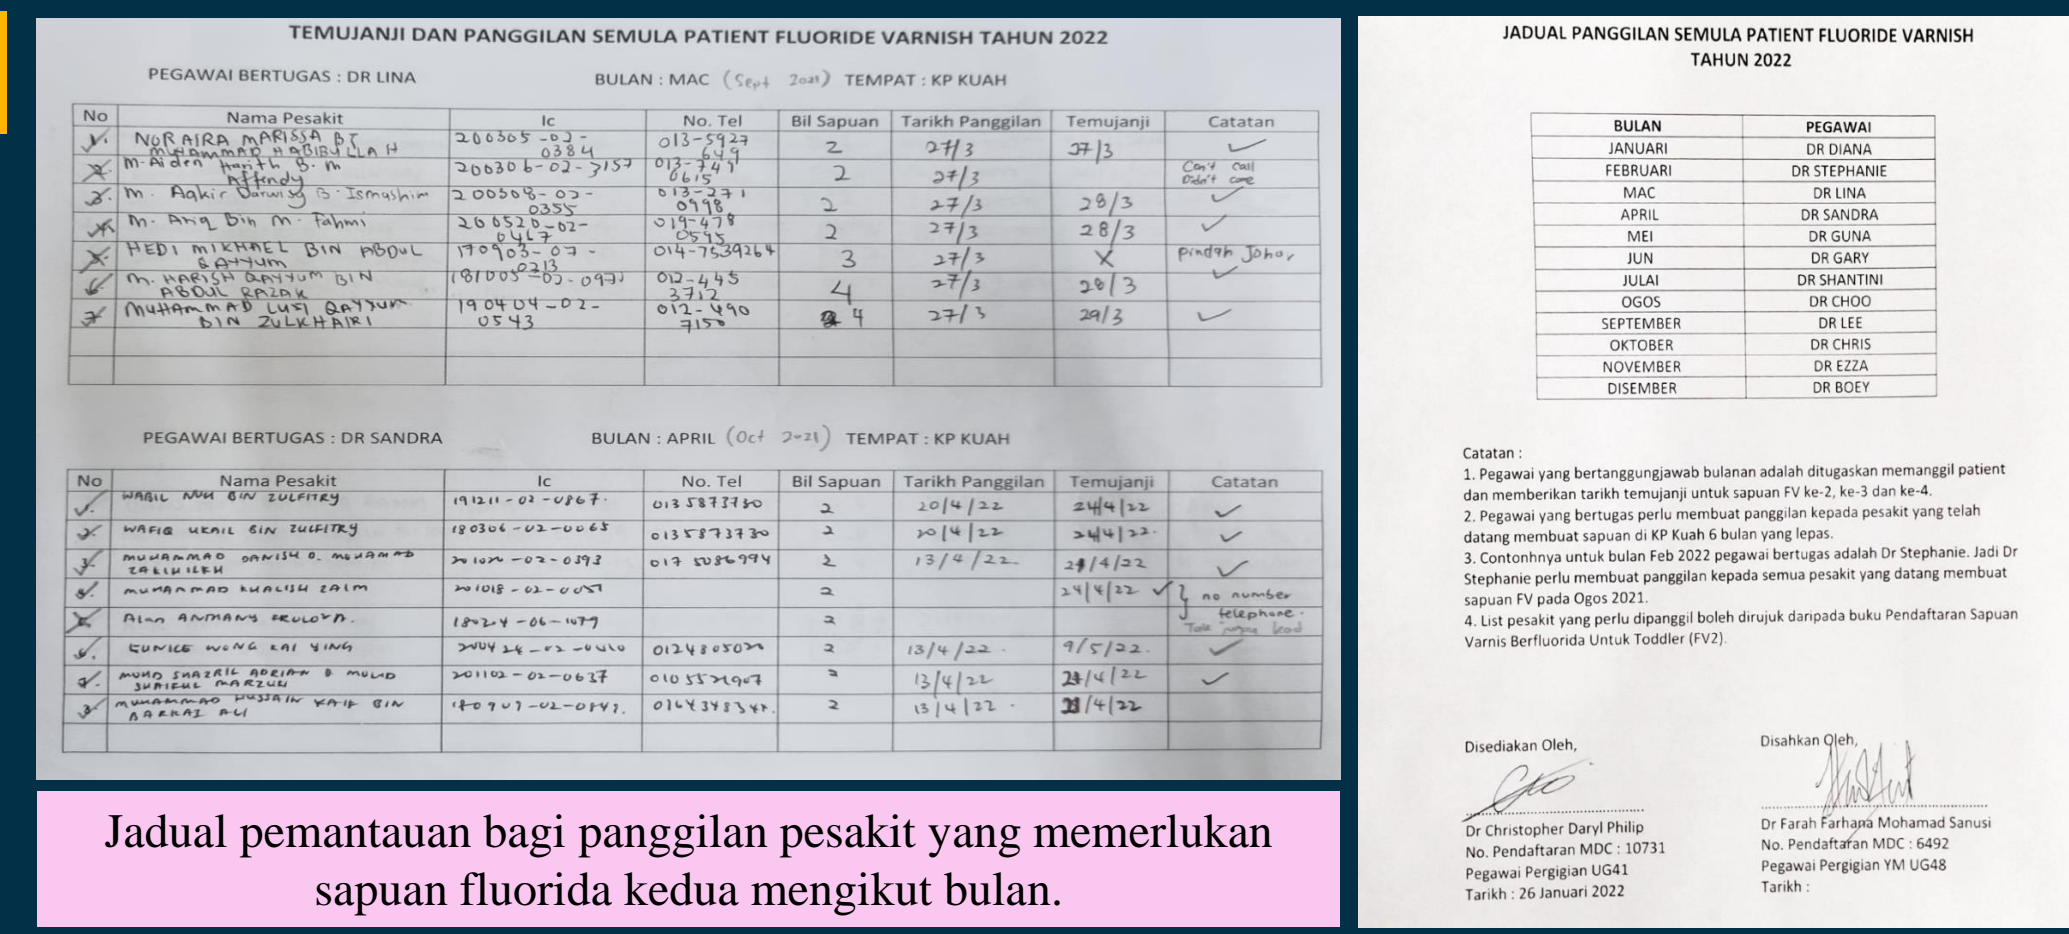 TEMUJANJI DAN PANGGILAN SEMULA PATIENT FLUORIDE VARNISH TAHUN 2022
PEGAWAI BERTUGAS : DR LINA BULAN : MAC (Sept 2021) TEMPAT : KP KUAH
No Nama Pesakit Ic No. Tel Bil Sapuan Tarikh Panggilan Temujanji Catatan
1. NOR AIRA MARISSA BT 200305-02- 013-5927
MUHAMMAD HABIBULLAH 0384 649 2 27/3 27/3 ✓
2. M. Aiden Harith B. M 200306-02-3157 013-749 Can't call
Affendy 0615 2 27/3 Didn't come
3. M. Aqkir Darwisy B. Ismashim 200508-02- 013-271
0355 0998 2 27/3 28/3 ✓
4. M. Ariq Bin M. Fahmi 200520-02- 019-478
0467 0595 2 27/3 28/3 ✓
5. HEDI MIKHAEL BIN ABDUL 170903-07- 014-7539264 3 27/3 X pindah Johor
QAYYUM 0213
6. M. HARISH QAYYUM BIN 181005-02-0971 012-445 4 27/3 28/3 ✓
ABDUL RAZAK 3712
7 MUHAMMAD LUSI QAYYUM 190404-02- 012-490 4 27/3 29/3 ✓
BIN ZULKHAIRI 0543 7150
PEGAWAI BERTUGAS : DR SANDRA BULAN : APRIL (Oct 2021) TEMPAT : KP KUAH
No Nama Pesakit Ic No. Tel Bil Sapuan Tarikh Panggilan Temujanji Catatan
1. WABIL NUH BIN ZULFITRY 191211-02-0867. 0135873730 2 20/4/22 24/4/22 ✓
2. WAFIQ UKAIL BIN ZULFITRY 180306-02-0065 0135873730 2 20/4/22 24/4/22. ✓
3. MUHAMMAD DANISH B. MOHAMAD 201020-02-0393 017 5086994 2 13/4/22. 21/4/22 ✓
4. MUHAMMAD KHALISH ZAIM 201018-02-0051 2 24/4/22 ✓ no number
telephone.
5. Alan ANTHANY 180224-06-1079 2
6. EUNICE WONG KAI YING 200424-02-0410 0124805020 2 13/4/22. 9/5/22. ✓
7. MUHD SHAZRIL ADRIAN B MUHD 201102-02-0637 0105521907 2 13/4/22 21/4/22 ✓
SHAIFUL MARZUKI
8. MUHAMMAD HUSSAIN KAIF BIN 2 13/4/22. /4/22
BARKAT ALI
Jadual pemantauan bagi panggilan pesakit yang memerlukan
sapuan fluorida kedua mengikut bulan.
JADUAL PANGGILAN SEMULA PATIENT FLUORIDE VARNISH
TAHUN 2022
BULAN PEGAWAI
JANUARI DR DIANA
FEBRUARI DR STEPHANIE
MAC DR LINA
APRIL DR SANDRA
MEI DR GUNA
JUN DR GARY
JULAI DR SHANTINI
OGOS DR CHOO
SEPTEMBER DR LEE
OKTOBER DR CHRIS
NOVEMBER DR EZZA
DISEMBER DR BOEY
Catatan :
1. Pegawai yang bertanggungjawab bulanan adalah ditugaskan memanggil patient
dan memberikan tarikh temujanji untuk sapuan FV ke-2, ke-3 dan ke-4.
2. Pegawai yang bertugas perlu membuat panggilan kepada pesakit yang telah
datang membuat sapuan di KP Kuah 6 bulan yang lepas.
3. Contonhnya untuk bulan Feb 2022 pegawai bertugas adalah Dr Stephanie. Jadi Dr
Stephanie perlu membuat panggilan kepada semua pesakit yang datang membuat
sapuan FV pada Ogos 2021.
4. List pesakit yang perlu dipanggil boleh dirujuk daripada buku Pendaftaran Sapuan
Varnis Berfluorida Untuk Toddler (FV2).
Disediakan Oleh,
Dr Christopher Daryl Philip
No. Pendaftaran MDC : 10731
Pegawai Pergigian UG41
Tarikh : 26 Januari 2022
Disahkan Oleh,
Dr Farah Farhana Mohamad Sanusi
No. Pendaftaran MDC : 6492
Pegawai Pergigian YM UG48
Tarikh :